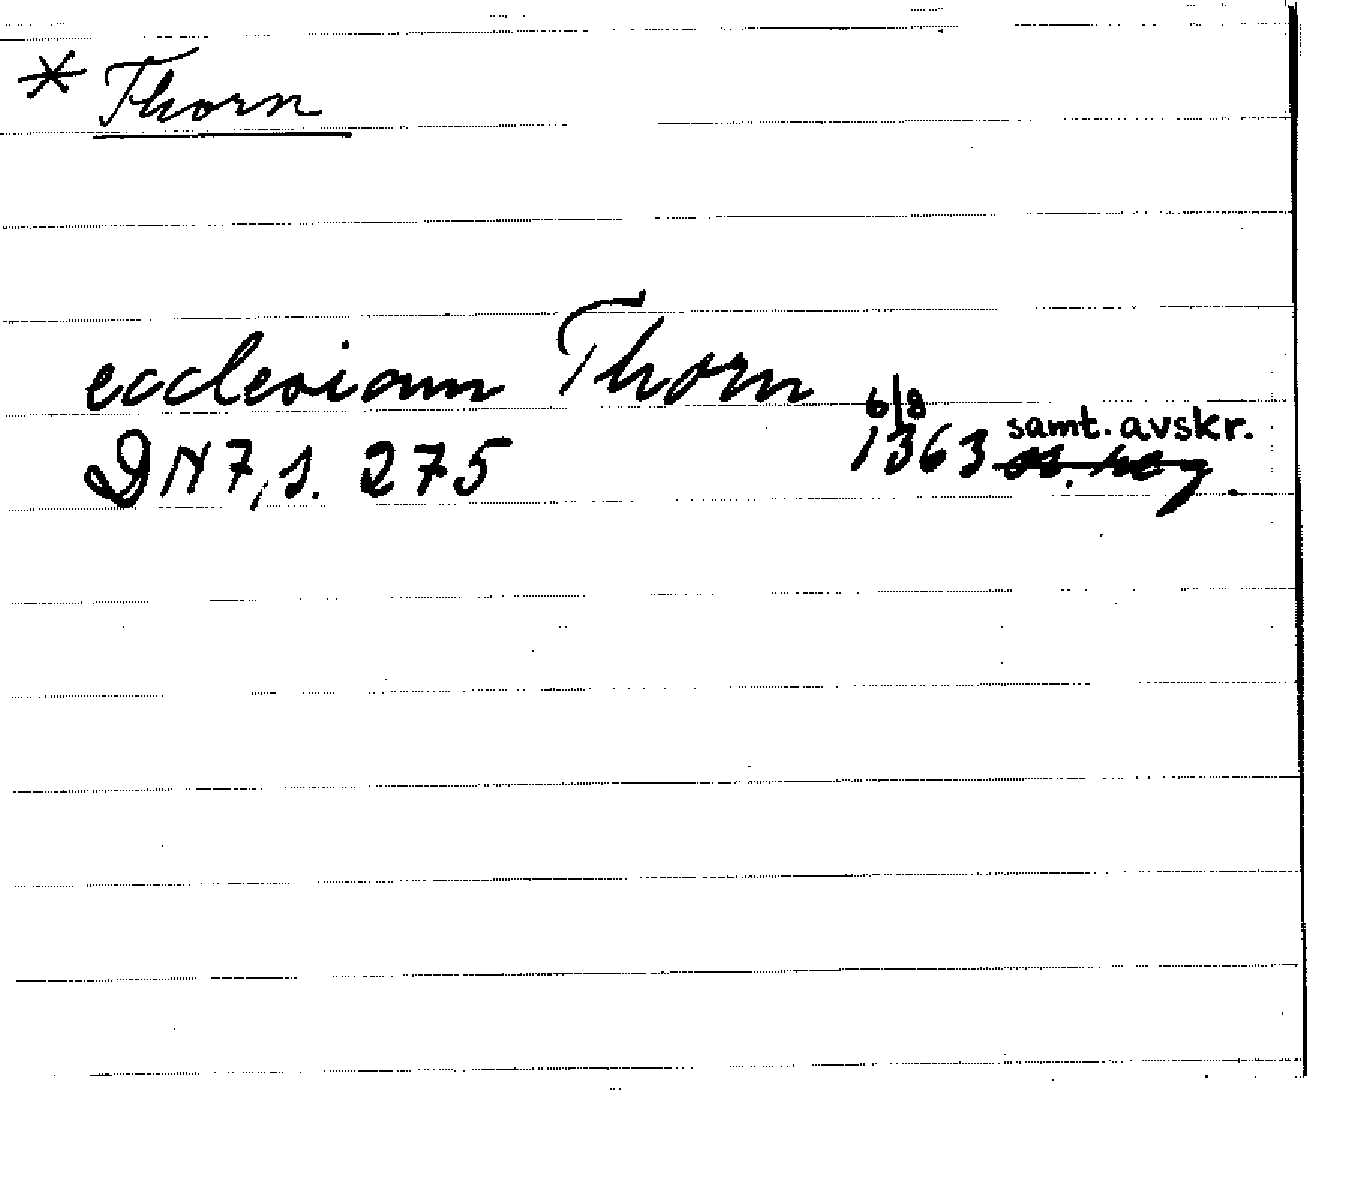 * Thorn
ecclesiam Thorn
DN 7, s. 275 6/8 1363 samt. avskr.